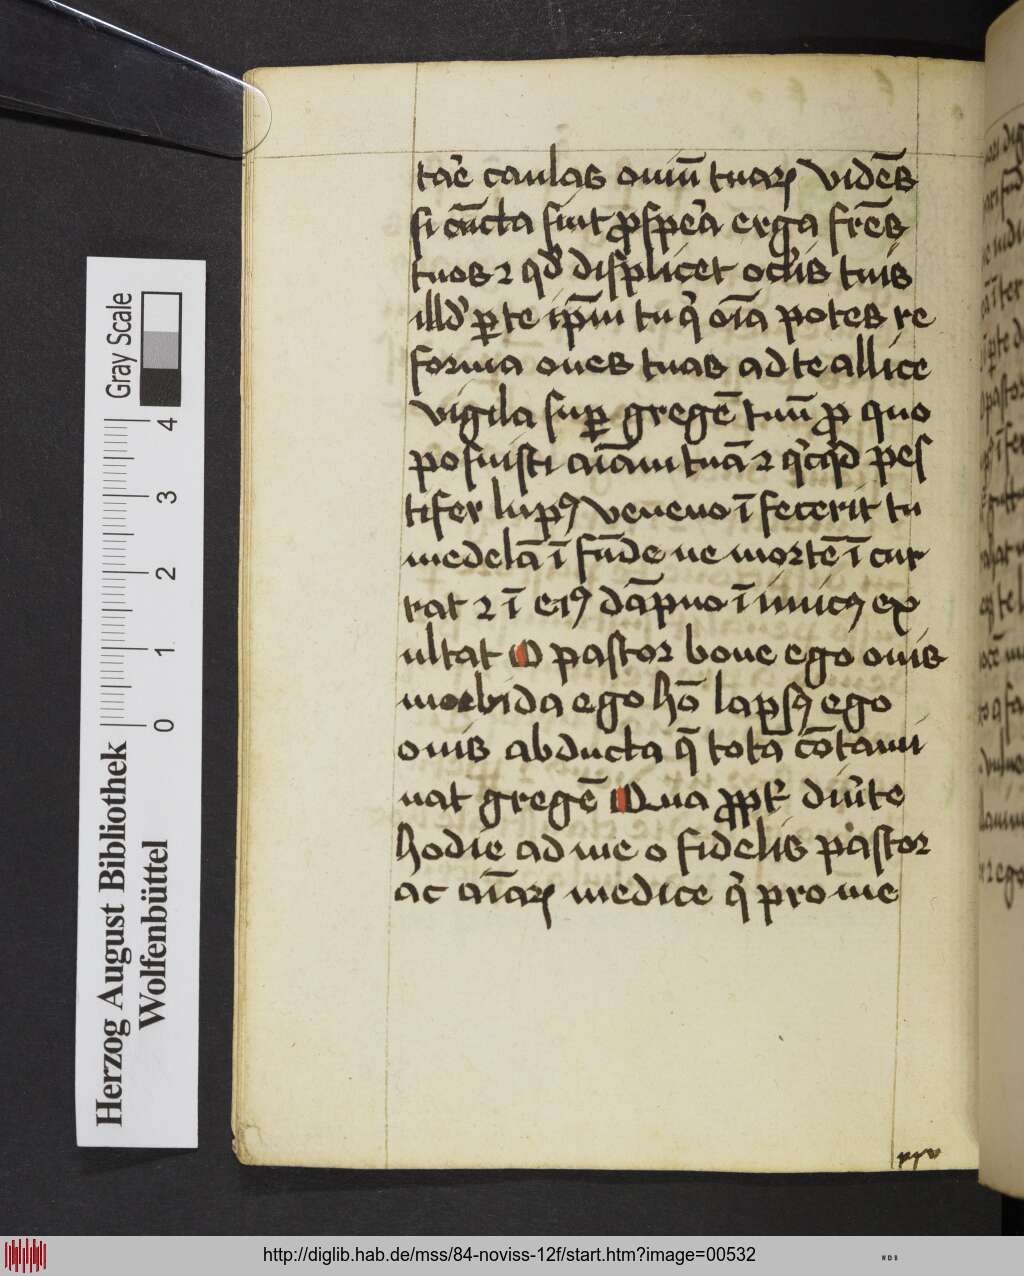 tar̄e caulas oviū tuaꝝ Vidēs
si cūcta sint ꝓspera erga frēs
tuos ⁊ qd̓ displicet ocl̓is tuis
illd̓ ꝑ te ip̄m tu q̓ oīa potes re
forma oues tuas ad te allice
Vigila suꝑ gregē tuū ꝓ quo
posuisti aīam tuā ⁊ q̓cqd̓ pes
tifer lupꝰ veneno īfecerit tu
medelā īfūde ne mortē īcur
rat ⁊ ī eiꝰ dāpno īimicꝰ ex
ultat O pastor bone ego ouis
morbida ego hō lapsꝰ ego
ouis abducta q̄ totā cōtami
nat gregē Qua ꝓpt̓ diūte
hodie ad me o fidelis pastor
ac aīaꝝ medice q̓ pro me
Herzog August Bibliothek
Wolfenbüttel
Gray Scale
0 1 2 3 4
http://diglib.hab.de/mss/84-noviss-12f/start.htm?image=00532